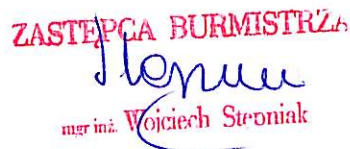 ZASTĘPCA BURMISTRZA
mgr inż. Wojciech Stępniak